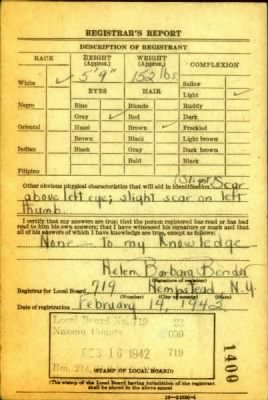 REGISTRAR'S REPORT
DESCRIPTION OF REGISTRANT
RACE HEIGHT (Approx.) WEIGHT (Approx.) COMPLEXION
White ✓ 5' 9" 152 lbs. Sallow
EYES HAIR Light ✓
Negro Blue Blonde Ruddy
Gray ✓ Red Dark
Oriental Hazel Brown ✓ Freckled
Brown Black Light brown
Indian Black Gray Dark brown
Bald Black
Filipino
Other obvious physical characteristics that will aid in identification (Slight) Scar
above left eye; slight scar on left
thumb.
I certify that my answers are true; that the person registered has read or has had
read to him his own answers; that I have witnessed his signature or mark and that
all of his answers of which I have knowledge are true, except as follows:
None - to my Knowledge
Helen Barbara Bender
(Signature of registrar)
Registrar for Local Board 719 Hempstead N.Y.
(Number) (City or county) (State)
Date of registration February 14, 1942
Local Board No. 719 23
Nassau County 059
FEB 16 1942 719
(STAMP OF LOCAL BOARD)
1400
(The stamp of the Local Board having jurisdiction of the registrant
shall be placed in the above space)